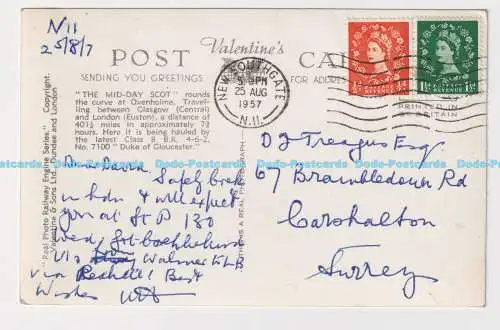 N11
25/8/7
POST
Valentine's
CA
SENDING YOU GREETINGS
FOR ADDRE
"THE MID-DAY SCOT" rounds
the curve at Oxenholme. Travel-
ling between Glasgow (Central)
and London (Euston), a distance of
401½ miles in approximately 7½
hours. Here it is being hauled by
the latest Class 8 B.R. 4-6-2,
No. 7100 "Duke of Gloucester."
"Real Photo Railway Engine Series." Copyright.
Valentine & Sons Ltd., Dundee and London
THIS IS A REAL PHOTOGRAPH
NEW SOUTHGATE
5 PM
25 AUG
1957
N.11.
POSTAGE REVENUE
½D
POSTAGE REVENUE
1½D
PRINTED IN
GT. BRITAIN
Dear Dave
Safely back
in hdn & will expect
you at St P 130
Wed
via Walmer & LB
via Best
Wishes
D J Treagus Esq
67 Brambledown Rd
Carshalton
Surrey
Dodo-Postcards Dodo-Postcards Dodo-Postcards Dodo-Postcards